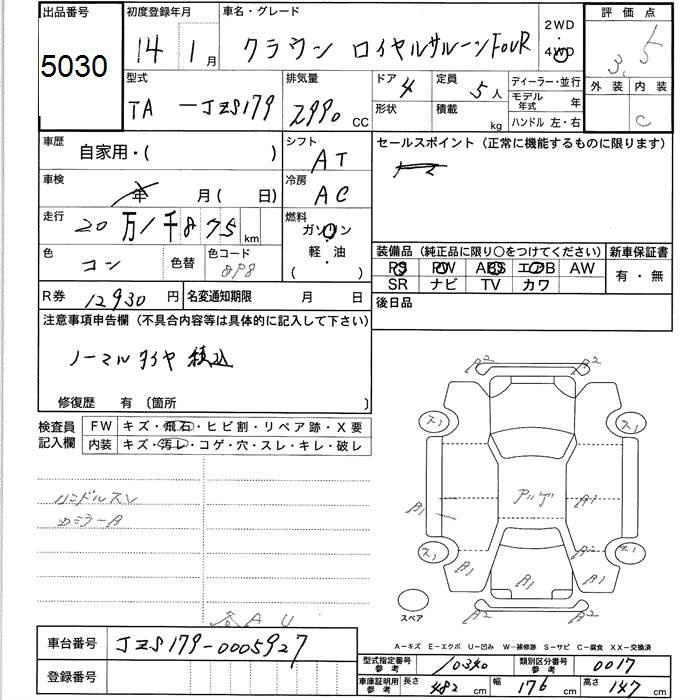 出品番号 初度登録年月 車名・グレード 2WD 評価点
5030 14 1月 クラウン ロイヤルサルーンFOUR 4WD 3.5
型式 排気量 ドア 4 定員 5人 ディーラー・並行 外装 内装
TA-JZS179 2990 CC 形状 積載 kg モデル年式 年 C
ハンドル 左・右
車歴 自家用・( ) シフト AT セールスポイント(正常に機能するものに限ります)
車検 年 月( 日) 冷房 AC
走行 20万1千875 km 燃料 ガソリン・軽油 ( )
色 コン 色替 色コード 8P8 装備品(純正品に限り○をつけてください) 新車保証書
PS PW ABS エアB AW 有・無
SR ナビ TV カワ
R券 12930円 名変通知期限 月 日 後日品
注意事項申告欄(不具合内容等は具体的に記入して下さい)
ノーマルタイヤ積込
修復歴 有〔箇所 〕
検査員記入欄 FW キズ・飛石・ヒビ割・リペア跡・X要
内装 キズ・汚レ・コゲ・穴・スレ・キレ・破レ
ハンドルスレ
Dミラー A
各AU
A2 A2
ス1 ス1
A1 アゲ A1
ス1 A2 ス1
A1 A1 A1
A2 A2
スペア
A-キズ E-エクボ U-凹み W-補修跡 S-サビ C-腐食 XX-交換済
車台番号 JZS179-0005927
登録番号
型式指定番号 参考 10340 類別区分番号 参考 0017
車庫証明用 参考 長さ 482 cm 幅 176 cm 高さ 147 cm